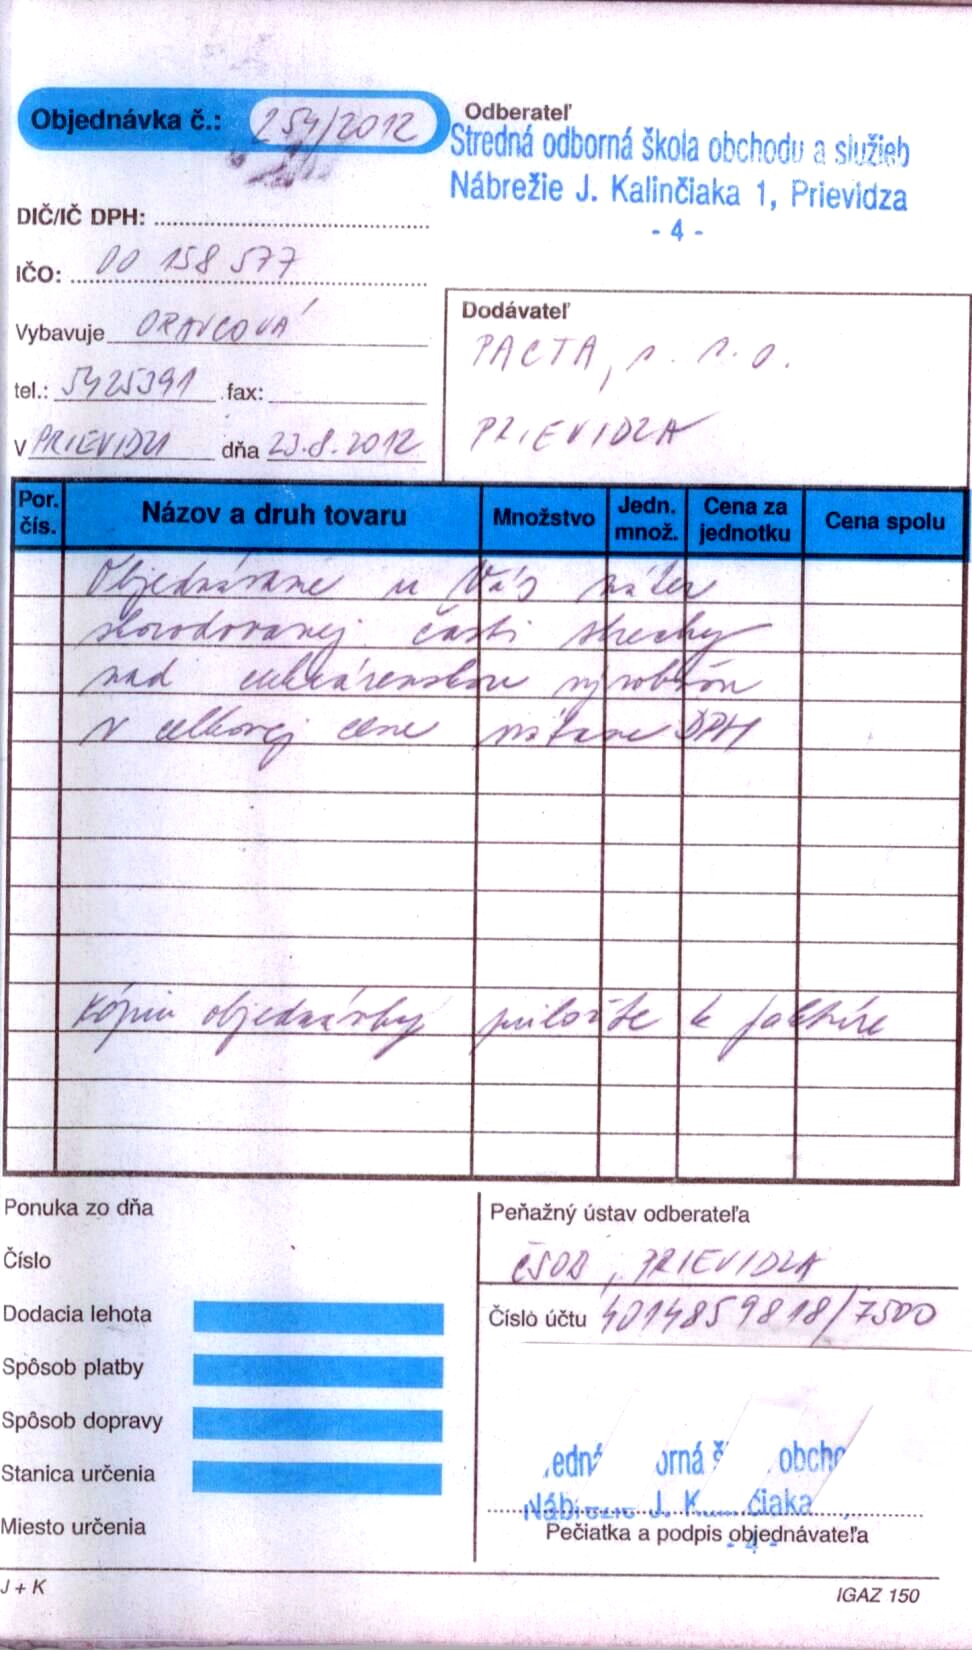 Objednávka č.: 254/2012
Odberateľ
Stredná odborná škola obchodu a služieb
Nábrežie J. Kalinčiaka 1, Prievidza
- 4 -
DIČ/IČ DPH:
IČO: 00 158 577
Vybavuje ORAVCOVÁ
tel.: 5425391 fax:
V PRIEVIDZI dňa 23.8.2012
Dodávateľ
PACTA, s. r. o.
PRIEVIDZA
Por. čís. Názov a druh tovaru Množstvo Jedn. množ. Cena za jednotku Cena spolu
Objednávame u Vás náter
skorodovanej časti strechy
nad cukrárenskou výrobňou
v celkovej cene vrátane DPH
Kópiu objednávky priložte k faktúre
Ponuka zo dňa
Číslo
Dodacia lehota
Spôsob platby
Spôsob dopravy
Stanica určenia
Miesto určenia
Peňažný ústav odberateľa
ČSOB, PRIEVIDZA
Číslo účtu 4014859818/7500
edná orná š obcho
Nábrežie J. K čiaka
Pečiatka a podpis objednávateľa
- 4 -
J + K
IGAZ 150